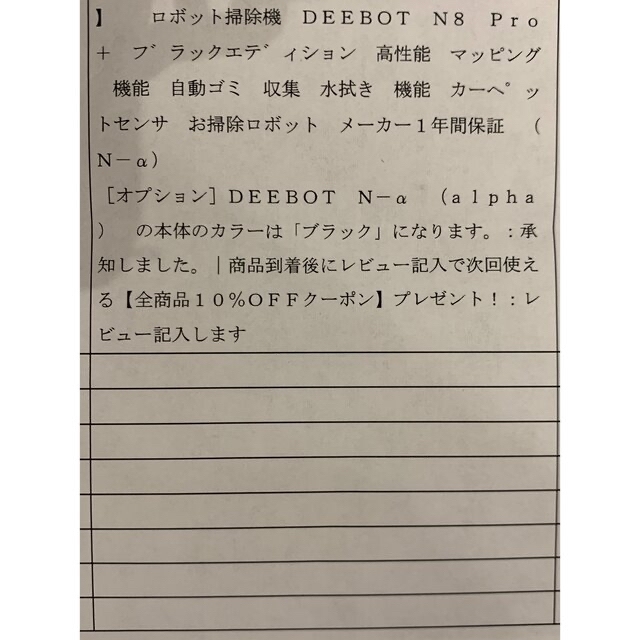 】　ロボット掃除機　ＤＥＥＢＯＴ　Ｎ８　Ｐｒｏ
＋　ブラックエディション　高性能　マッピング
　機能　自動ゴミ　収集　水拭き　機能　カーペッ
トセンサ　お掃除ロボット　メーカー１年間保証　（
Ｎ－α）
［オプション］ＤＥＥＢＯＴ　Ｎ－α　（ａｌｐｈａ
）　の本体のカラーは「ブラック」になります。：承
知しました。｜商品到着後にレビュー記入で次回使え
る【全商品１０％ＯＦＦクーポン】プレゼント！：レ
ビュー記入します